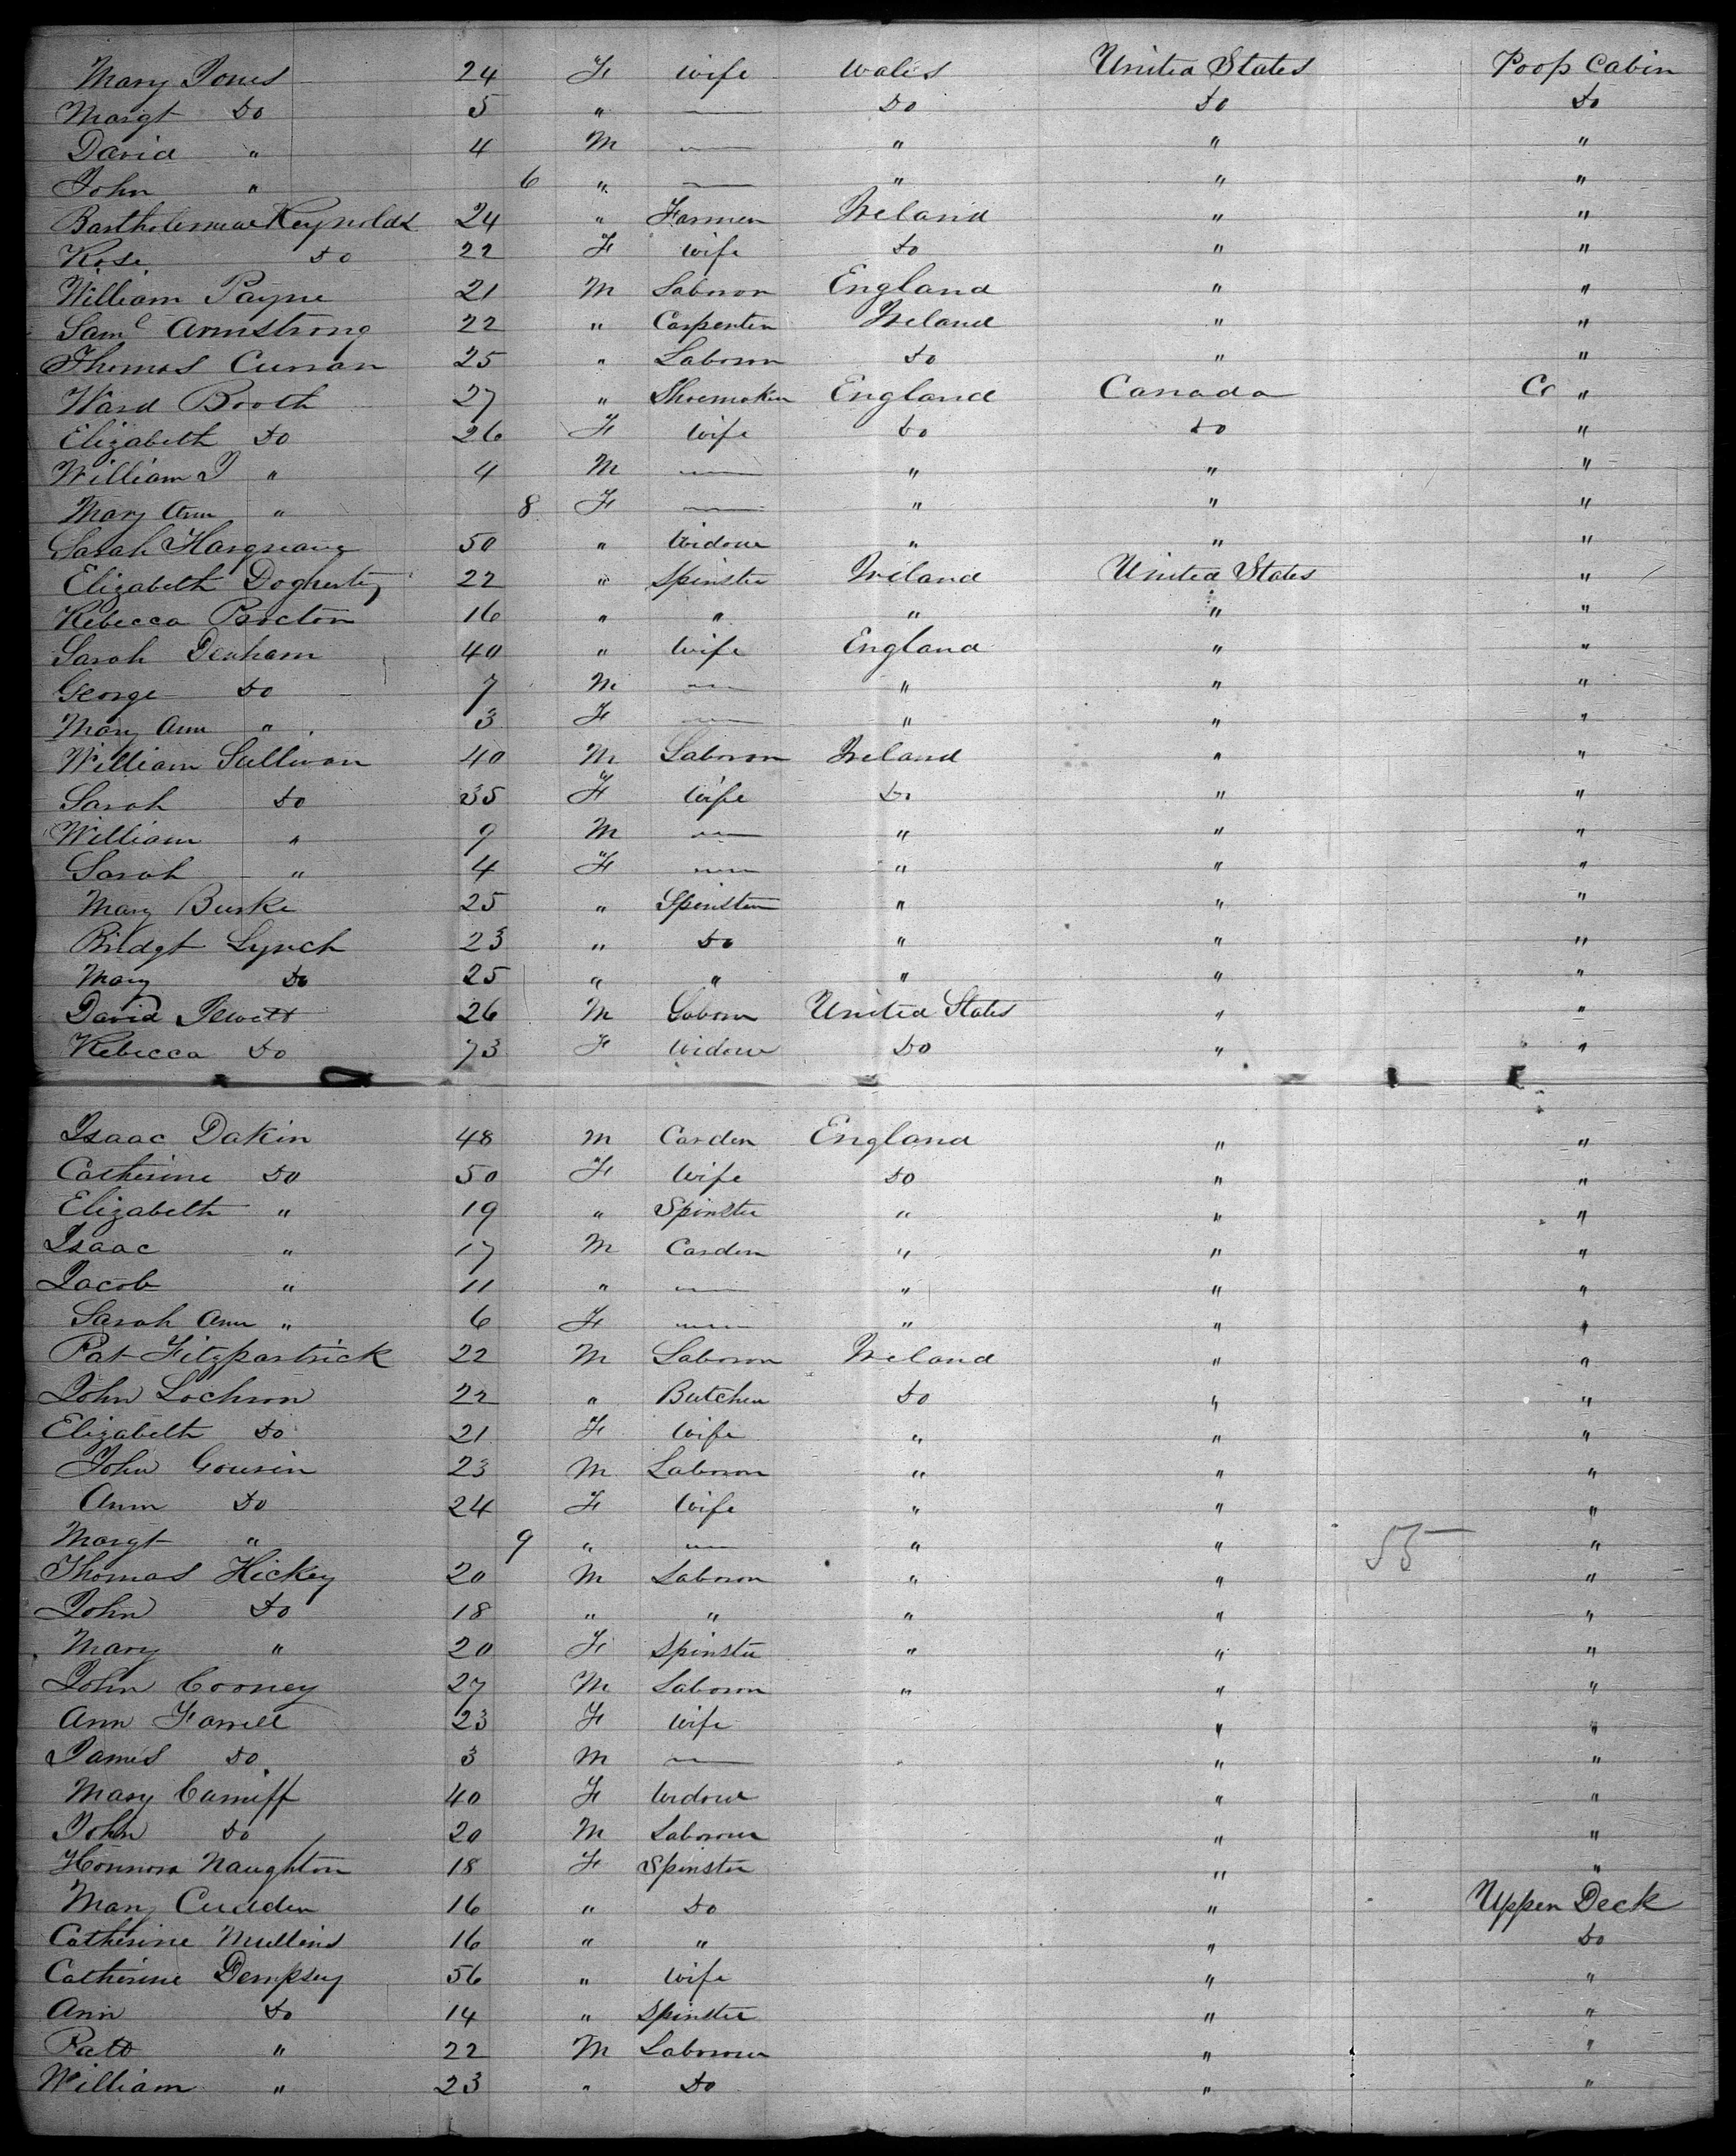 Mary Jones 24 F Wife Wales United States Poop Cabin
Margt Do 5 " — Do Do Do
David " 4 M — " " "
John " 6 " — " " "
Bartholemew Reynolds 24 " Farmer Ireland " "
Rose Do 22 F Wife Do " "
William Payne 21 M Laborer England " "
Saml Armstrong 22 " Carpenter Ireland " "
Thomas Curran 25 " Laborer Do " "
Ward Booth 27 " Shoemaker England Canada "
Elizabeth Do 26 F Wife Do Do "
William J " 4 M — " " "
Mary Ann " 8 F — " " "
Sarah Hargreave 50 " Widow " " "
Elizabeth Dogherty 22 " Spinster Ireland United States "
Rebecca Procton 16 " " " " "
Sarah Denham 40 " Wife England " "
George Do 7 M — " " "
Mary Ann " 3 F — " " "
William Sullivan 40 M Laborer Ireland " "
Sarah Do 35 F Wife Do " "
William " 9 M — " " "
Sarah " 4 F — " " "
Mary Burke 25 " Spinster " " "
Bridgt Lynch 23 " Do " " "
Mary Do 25 " " " " "
David Jewett 26 M Labour United States " "
Rebecca Do 73 F Widow Do " "
Isaac Dakin 48 M Carder England " "
Catherine Do 50 F Wife Do " "
Elizabeth " 19 " Spinster " " "
Isaac " 17 M Carder " " "
Jacob " 11 " — " " "
Sarah Ann " 6 F — " " "
Pat Fitzpartrick 22 M Laborer Ireland " "
John Lochron 22 " Butcher Do " "
Elizabeth Do 21 F Wife " " "
John Gousin 23 M Laborer " " "
Ann Do 24 F Wife " " "
Margt " 9 " — " " "
Thomas Hickey 20 M Laborer " " "
John Do 18 " " " " "
Mary " 20 F Spinster " " "
John Cooney 27 M Laborer " " "
Ann Farrell 23 F Wife " "
James Do 3 M — " "
Mary Cunniff 40 F Widow " "
John Do 20 M Laborour " "
Honnora Naughton 18 F Spinster " "
Mary Cudden 16 " Do " Upper Deck
Catherine Mullins 16 " " " Do
Catherine Dempsey 56 " Wife " "
Ann Do 14 " Spinster " "
Patt " 22 M Laborour " "
William " 23 " Do " "